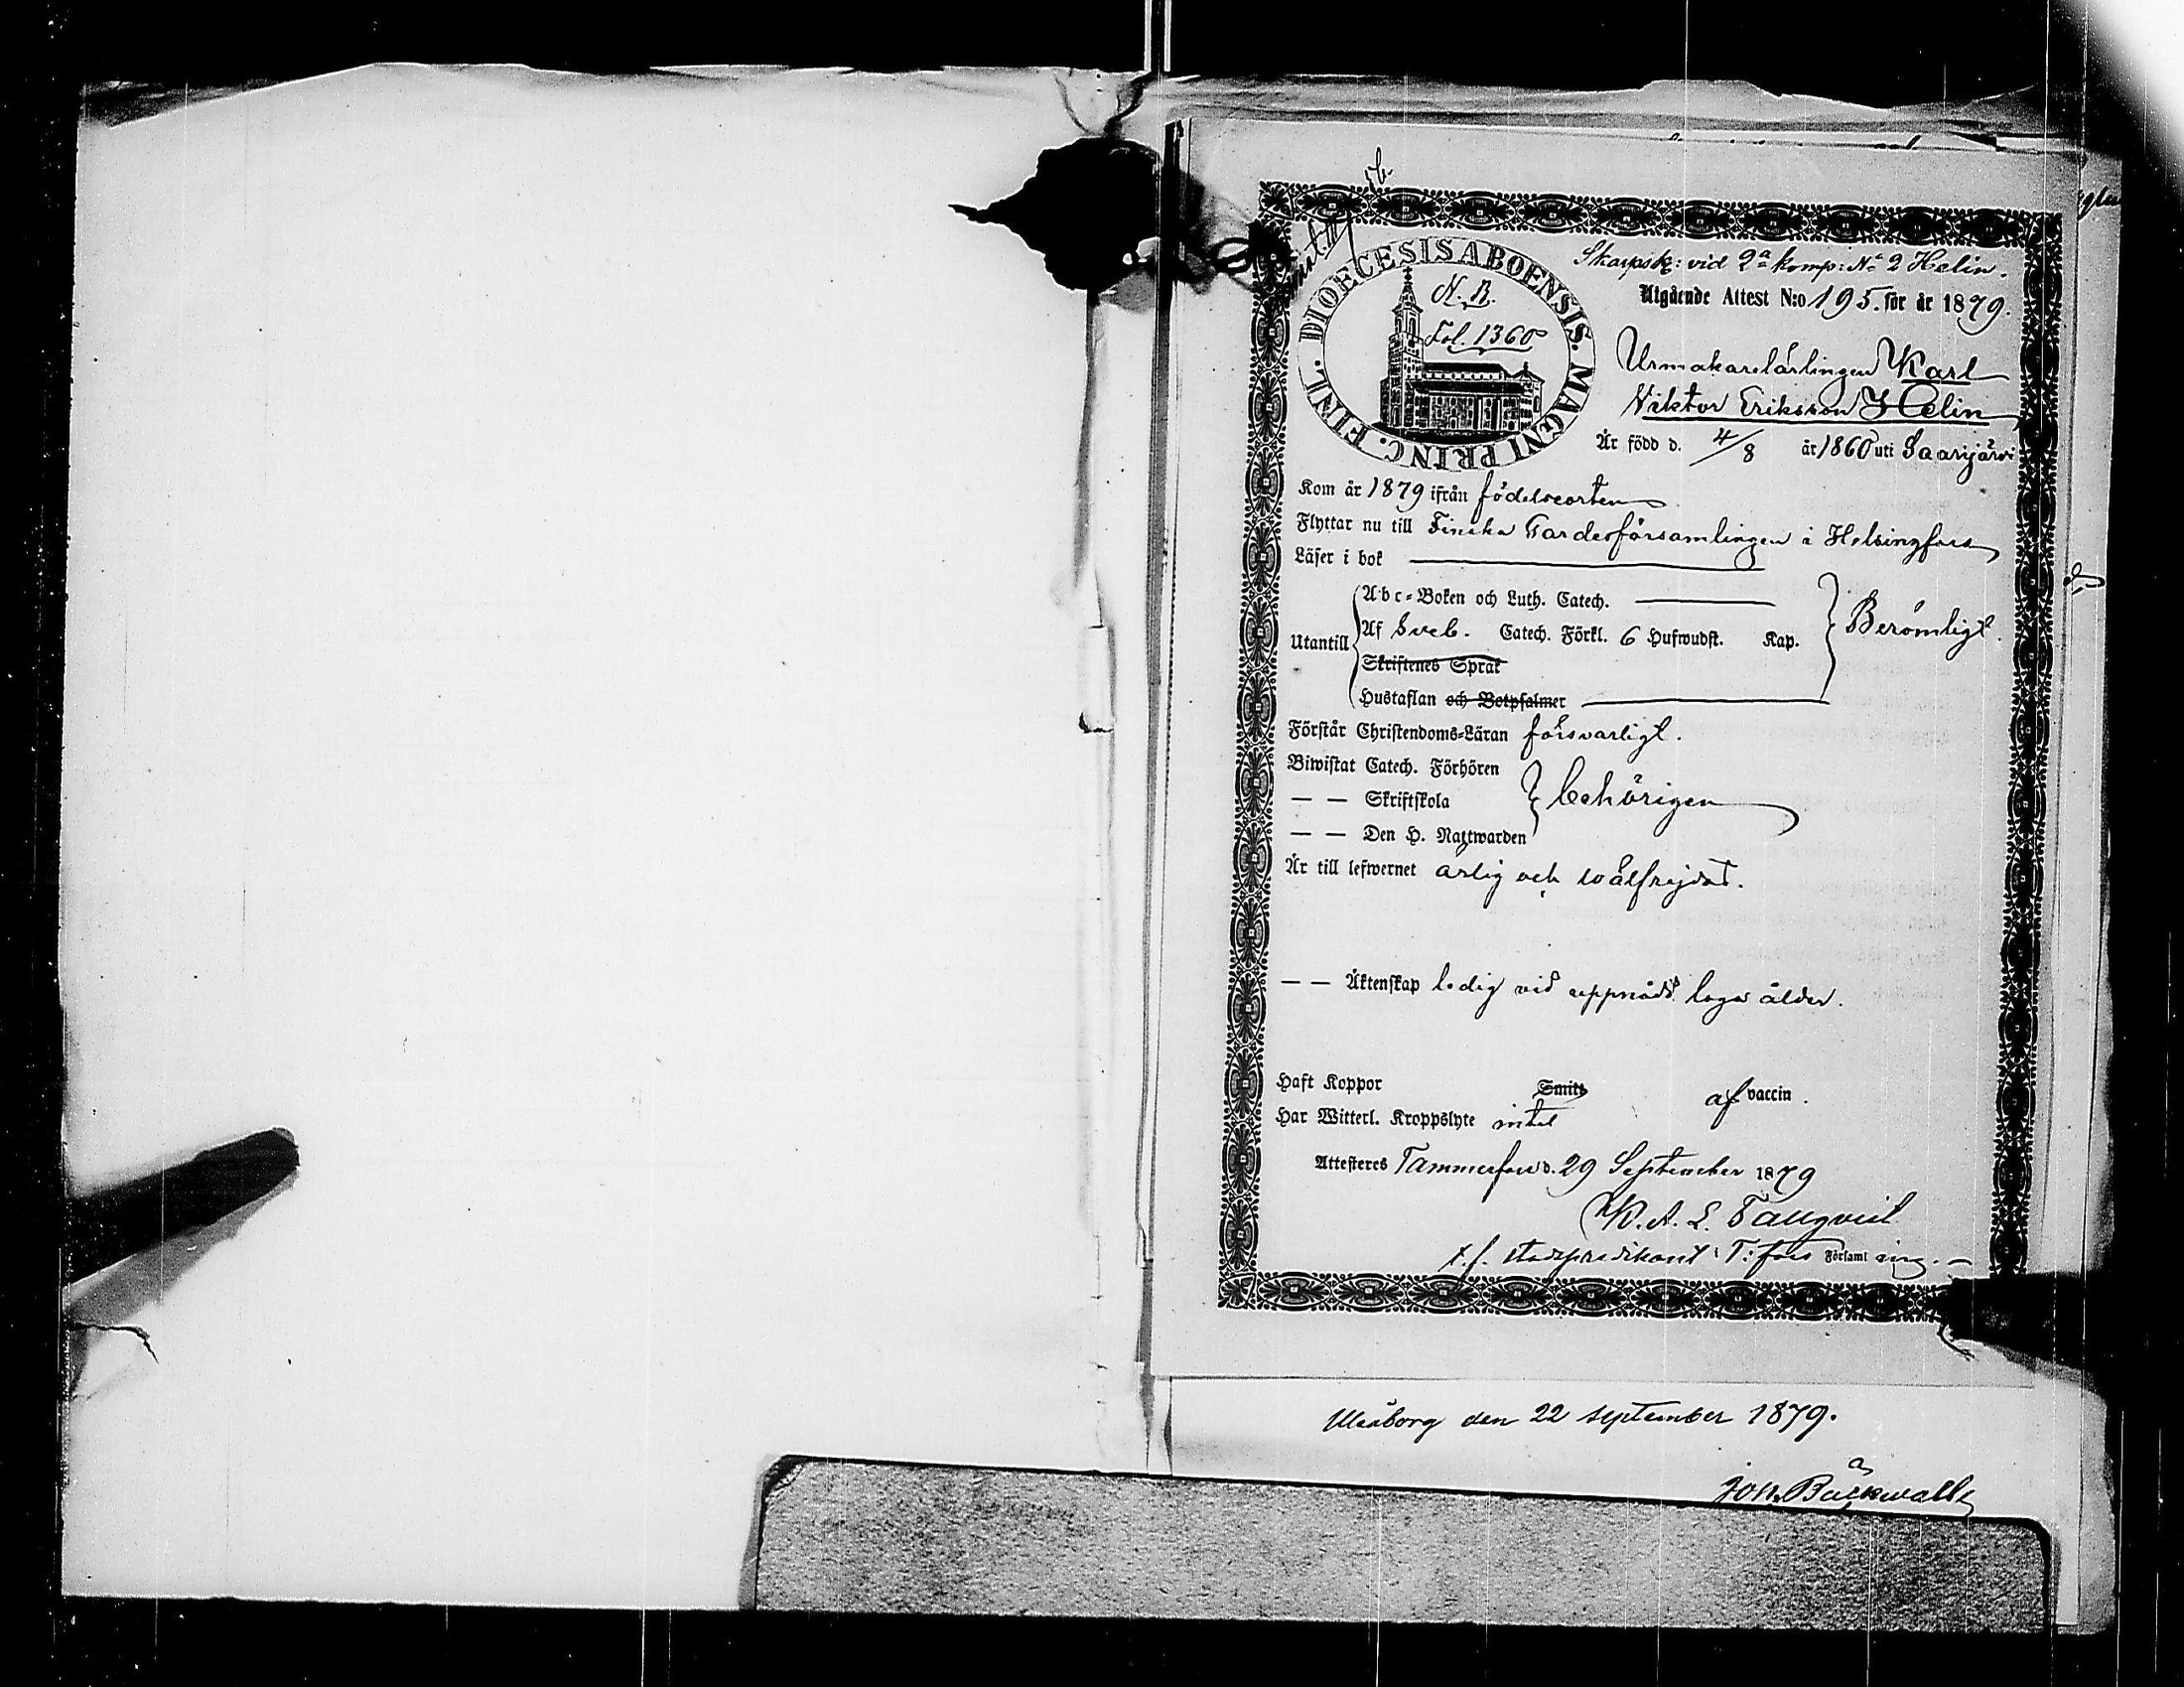 Skarpsk: vid 2a komp: No 2 Helin.
DIOECESIS ABOENSIS. MAGNI PRINC. FINL.
N. B.
Fol. 1360
Utgående Attest N:o 195. för år 1879.
Urmakarelärlingen Karl
Viktor Eriksson Helin
Är född d. 4/8 år 1860 uti Saarijärvi
Kom år 1879 ifrån födelseorten
Flyttar nu till Finska Gardesförsamlingen i Helsingfors
Läser i bok
Utantill
Abc-Boken och Luth. Catech.
Af Sveb. Catech. Förkl. 6 Hufwudst. Kap.
Berömligt.
Skriftenes Språk
Hustaflan och Botpsalmer
Förstår Christendoms-Läran försvarligt.
Biwistat Catech. Förhören
— — Skriftskola
behörigen
— — Den H. Nattwarden
Är till lefwernet ärlig och wälfrejdad.
— — Äktenskap ledig vid uppnådd laga ålder.
Haft Koppor Smitt af vaccin.
Har Witterl. Kroppslyte intet
Attesteres Tammerfors d. 29 September 1879
K. A. L. Tallqvist
t. f. stadspredikant i T:fors Församling.
Uleåborg den 22 september 1879.
Joh. Bäckwall